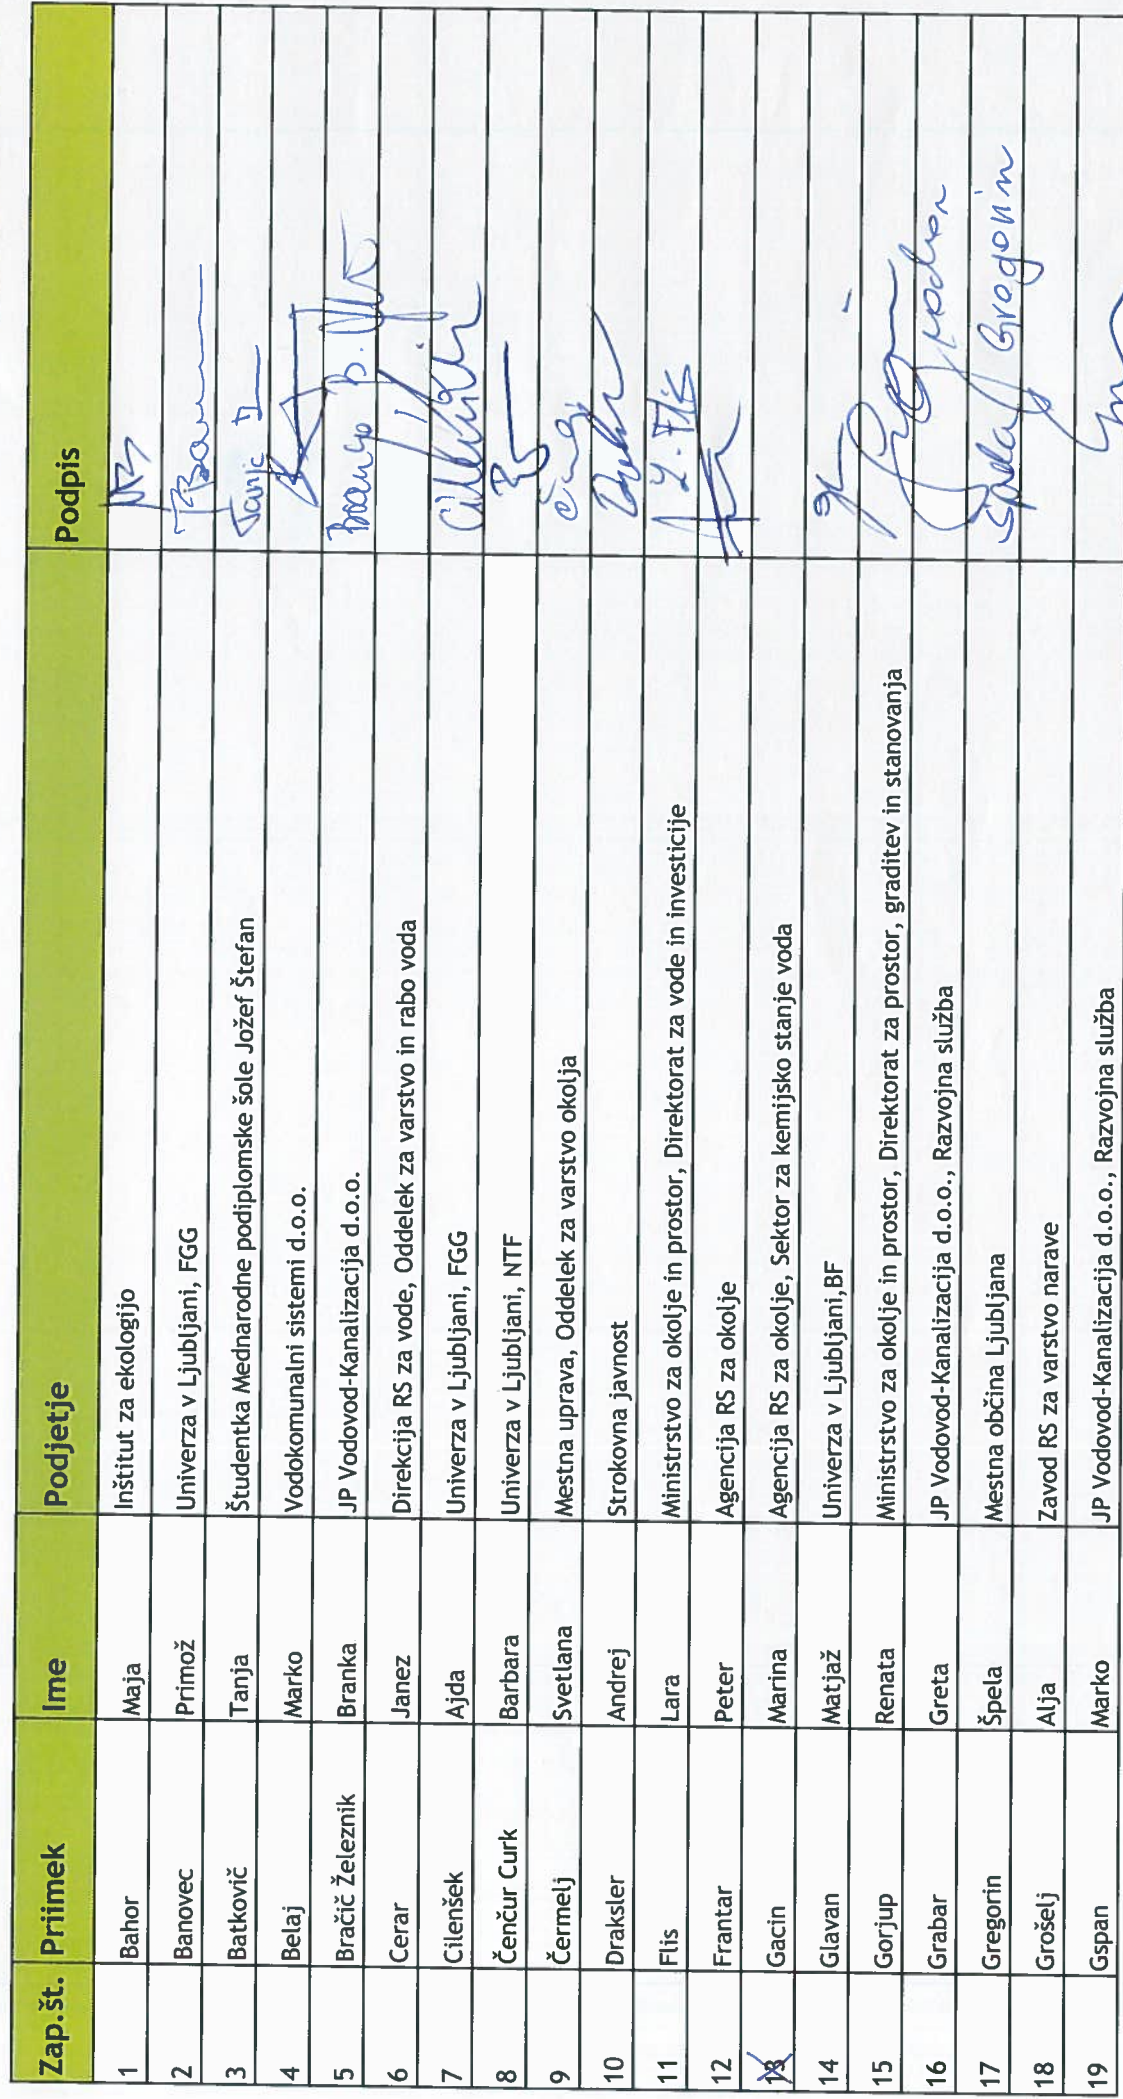 Zap.št. Priimek Ime Podjetje Podpis
1 Bahor Maja Inštitut za ekologijo
2 Banovec Primož Univerza v Ljubljani, FGG
3 Batkovič Tanja Študentka Mednarodne podiplomske šole Jožef Štefan Tanja
4 Belaj Marko Vodokomunalni sistemi d.o.o.
5 Bračič Železnik Branka JP Vodovod-Kanalizacija d.o.o.
6 Cerar Janez Direkcija RS za vode, Oddelek za varstvo in rabo voda
7 Cilenšek Ajda Univerza v Ljubljani, FGG
8 Čenčur Curk Barbara Univerza v Ljubljani, NTF
9 Čermelj Svetlana Mestna uprava, Oddelek za varstvo okolja
10 Draksler Andrej Strokovna javnost
11 Flis Lara Ministrstvo za okolje in prostor, Direktorat za vode in investicije L. Flis
12 Frantar Peter Agencija RS za okolje
13 Gacin Marina Agencija RS za okolje, Sektor za kemijsko stanje voda
14 Glavan Matjaž Univerza v Ljubljani,BF
15 Gorjup Renata Ministrstvo za okolje in prostor, Direktorat za prostor, graditev in stanovanja
16 Grabar Greta JP Vodovod-Kanalizacija d.o.o., Razvojna služba
17 Gregorin Špela Mestna občina Ljubljana Špela Gregorin
18 Grošelj Alja Zavod RS za varstvo narave
19 Gspan Marko JP Vodovod-Kanalizacija d.o.o., Razvojna služba